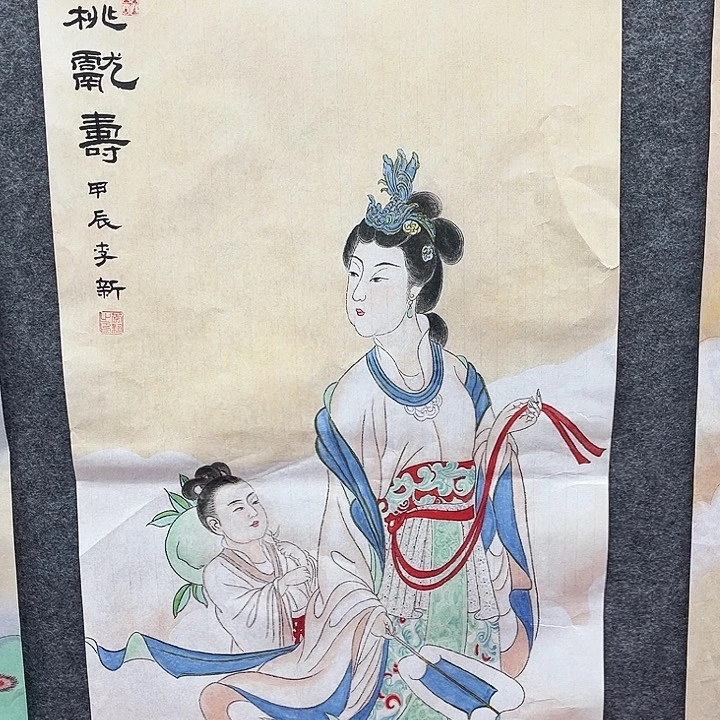 桃獻壽甲辰李新